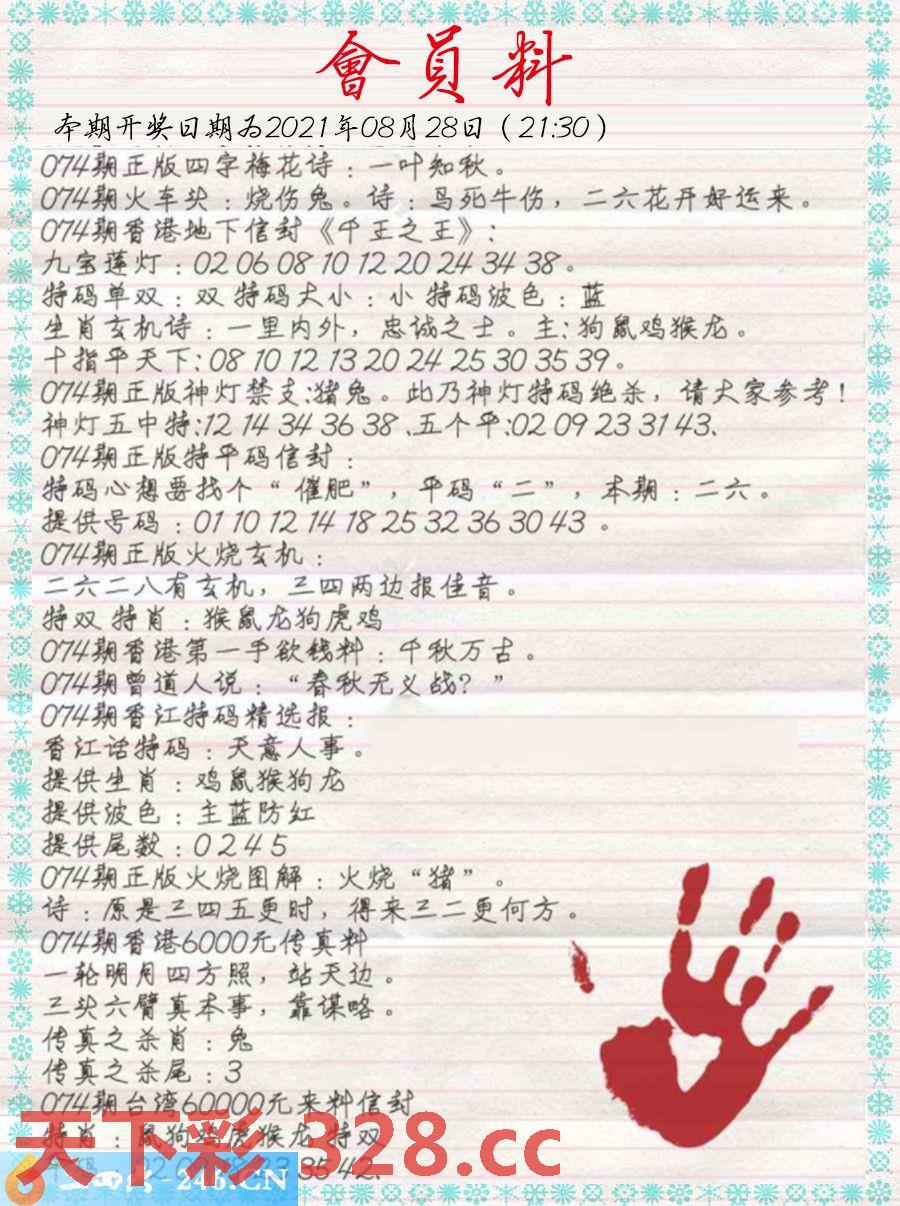 會員料
本期开奖日期为2021年08月28日（21:30）
074期正版四字梅花诗：一叶知秋。
074期火车头：烧伤兔。诗：鸟死牛伤，二六花开好运来。
074期香港地下信封《千王之王》：
九宝莲灯：02 06 08 10 12 20 24 34 38。
特码单双：双 特码大小：小 特码波色：蓝
生肖玄机诗：一里内外，忠诚之士。主：狗鼠鸡猴龙。
十指平天下：08 10 12 13 20 24 25 30 35 39。
074期正版神灯禁支：猪兔。此乃神灯特码绝杀，请大家参考！
神灯五中特：12 14 34 36 38、五个平：02 09 23 31 43、
074期正版特平码信封：
特码心想要找个“催肥”，平码“二”，本期：二六。
提供号码：01 10 12 14 18 25 32 36 30 43 。
074期正版火烧玄机：
二六二八有玄机，三四两边报佳音。
特双 特肖：猴鼠龙狗虎鸡
074期香港第一手欲钱料：千秋万古。
074期曾道人说：“春秋无义战？”
074期香江特码精选报：
香江话特码：天意人事。
提供生肖：鸡鼠猴狗龙
提供波色：主蓝防红
提供尾数：0 2 4 5
074期正版火烧图解：火烧“猪”。
诗：原是三四五更时，得来三二更何方。
074期香港6000元传真料
一轮明月四方照，站天边。
三头六臂真本事，靠谋略。
传真之杀肖：兔
传真之杀尾：3
074期台湾60000元来料信封
特肖：鼠狗鸡虎猴龙 特双
35 42、
天下彩 328.cc
二四六-246.CN